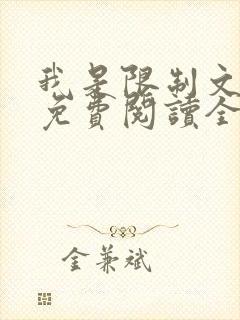 我是限制文
免費閱讀全
金兼斌